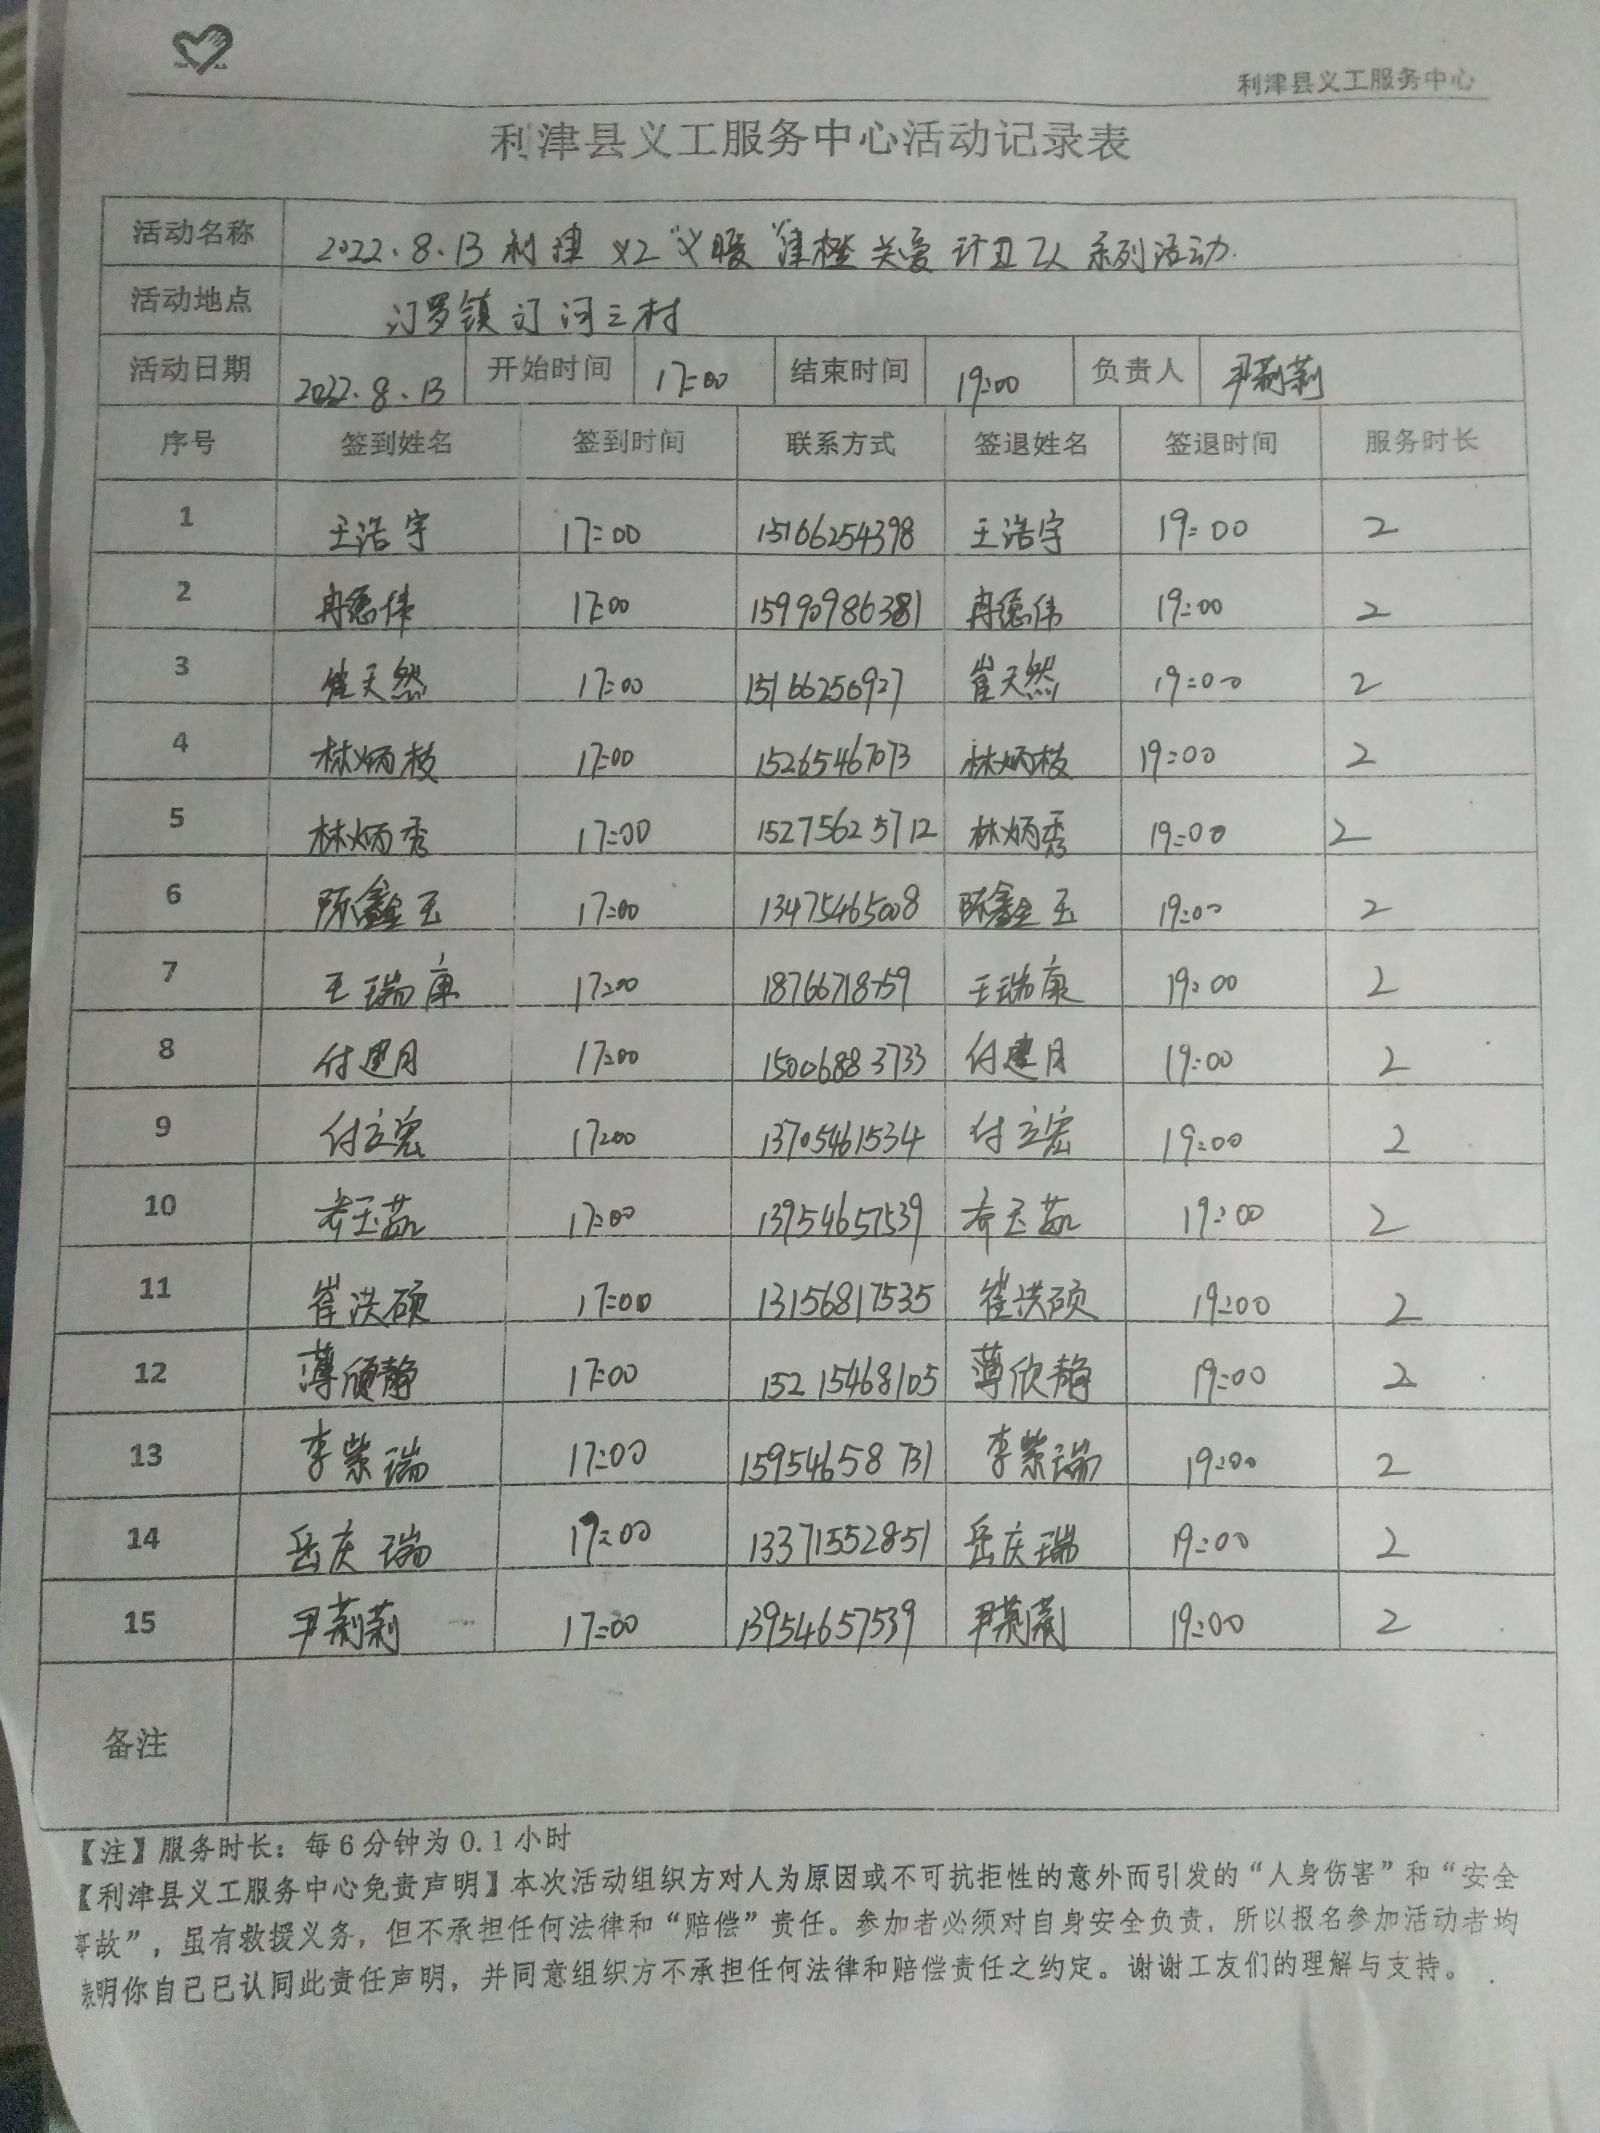 利津县义工服务中心
利津县义工服务中心活动记录表
活动名称 2022.8.13 利津义工"义暖"津橙关爱计划 系列活动
活动地点 汀罗镇汀河三村
活动日期 2022.8.13 开始时间 17:00 结束时间 19:00 负责人 尹莉莉
序号 签到姓名 签到时间 联系方式 签退姓名 签退时间 服务时长
1 王浩宇 17:00 15166254398 王浩宇 19:00 2
2 冉德伟 17:00 15990986381 冉德伟 19:00 2
3 崔天然 17:00 15166256927 崔天然 19:00 2
4 林炳枝 17:00 15265467073 林炳枝 19:00 2
5 林炳秀 17:00 15275625712 林炳秀 19:00 2
6 陈鑫玉 17:00 13475465008 陈鑫玉 19:00 2
7 王瑞康 17:00 18766718759 王瑞康 19:00 2
8 付建月 17:00 15006883733 付建月 19:00 2
9 付立宏 17:00 13705461534 付立宏 19:00 2
10 17:00 13954657539 19:00 2
11 崔洪硕 17:00 13156817535 崔洪硕 19:00 2
12 薄欣静 17:00 15215468105 薄欣静 19:00 2
13 李荣瑞 17:00 15954658731 李荣瑞 19:00 2
14 岳庆瑞 19:00 13371552851 岳庆瑞 19:00 2
15 尹莉莉 17:00 13954657539 尹莉莉 19:00 2
备注
【注】服务时长：每6分钟为0.1小时
【利津县义工服务中心免责声明】本次活动组织方对人为原因或不可抗拒性的意外而引发的“人身伤害”和“安全
事故”，虽有救援义务，但不承担任何法律和“赔偿”责任。参加者必须对自身安全负责，所以报名参加活动者均
表明你自已已认同此责任声明，并同意组织方不承担任何法律和赔偿责任之约定。谢谢工友们的理解与支持。